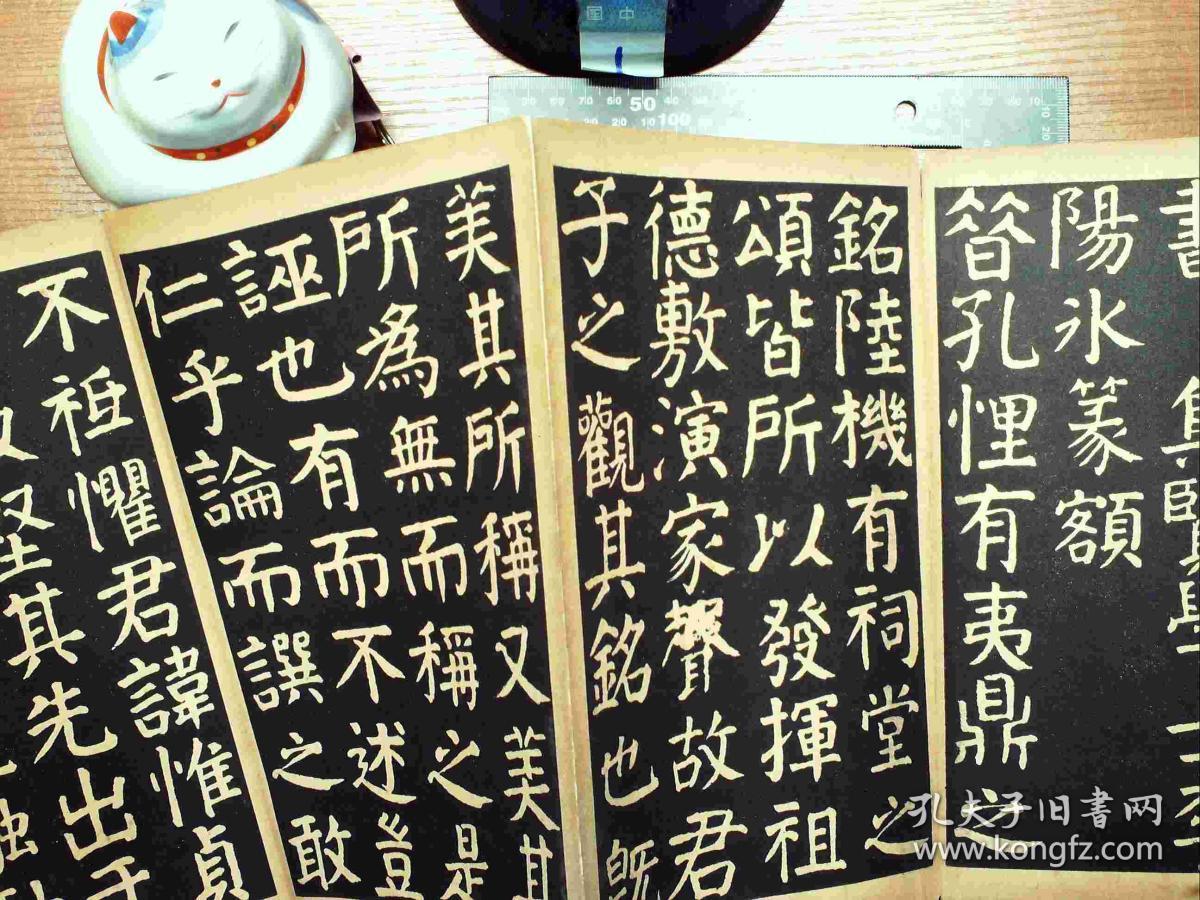 書
陽氷篆額
昝孔悝有夷鼎之
銘陸機有祠堂之
頌皆所以發揮祖
德敷演家聲故君
子之觀其銘也既
美其所稱又美其
所為無而稱之是
誣也有而不述豈
仁乎論而譔之敢
不祗懼君諱惟貞
其先出于
中国
孔夫子旧书网
www.kongfz.com
50
100